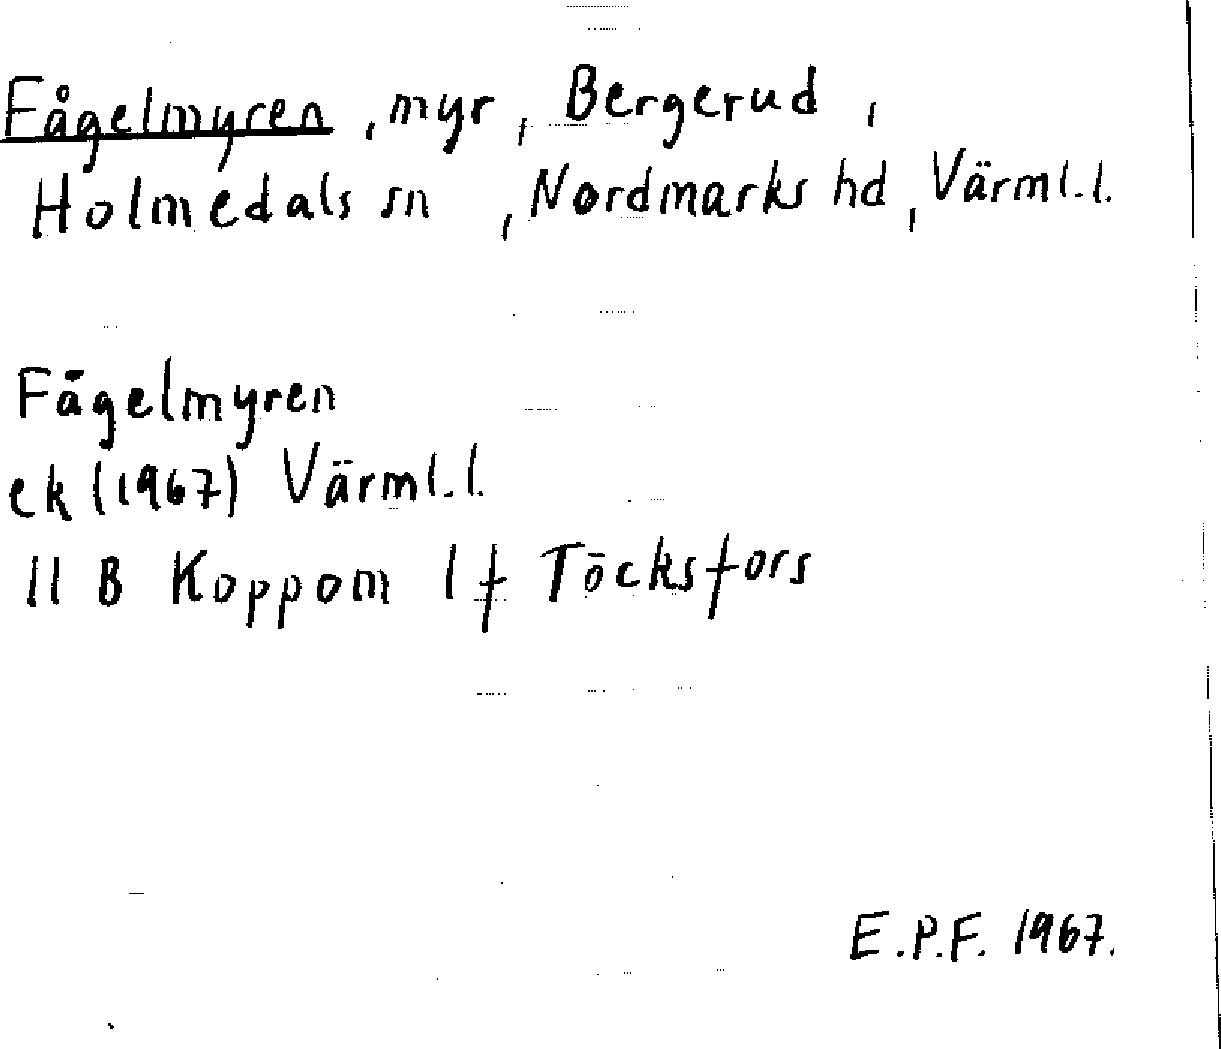 Fågelmyren, myr, Bergerud,
Holmedals sn, Nordmarks hd, Värml.l.
Fågelmyren
ek (1967) Värml.l.
11 B Koppom 1 f Töcksfors
E.P.F. 1967.